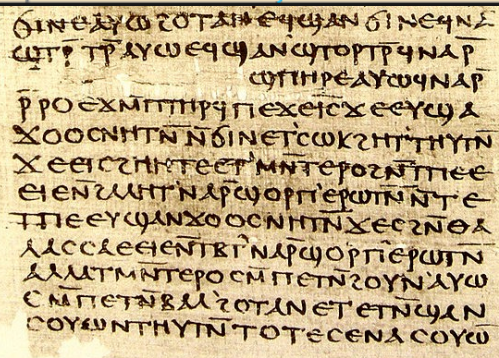 ϭⲓⲛⲉⲁⲩⲱϩⲟⲧⲁⲛⲉϥϣⲁⲛϭⲓⲛⲉϥⲛⲁ
ϣⲧⲣ̄ⲧⲣ̄ⲁⲩⲱⲉϥϣⲁⲛϣⲧⲟⲣⲧⲣ̄ϥⲛⲁⲣ̄
ϣⲡⲏⲣⲉⲁⲩⲱϥⲛⲁⲣ̄
ⲣ̄ⲣⲟⲉϫⲙ̄ⲡⲧⲏⲣϥ̄ⲡⲉϫⲉⲓ̄ⲥ̄ϫⲉⲉⲩϣⲁ
ϫⲟⲟⲥⲛⲏⲧⲛ̄ⲛ̄ϭⲓⲛⲉⲧ'ⲥⲱⲕϩⲏⲧ'ⲧⲏⲩⲧⲛ̄
ϫⲉⲉⲓⲥϩⲏⲏⲧⲉⲉⲧ'ⲙⲛ̄ⲧⲉⲣⲟϩⲛ̄ⲧⲡⲉⲉ
ⲉⲓⲉⲛ̄ϩⲁⲗⲏⲧ'ⲛⲁⲣ̄ϣⲟⲣⲡ'ⲉⲣⲱⲧⲛ̄ⲛ̄ⲧⲉ
ⲧⲡⲉⲉⲩϣⲁⲛϫⲟⲟⲥⲛⲏⲧⲛ̄ϫⲉⲥϩⲛ̄ⲑⲁ
ⲗⲁⲥⲥⲁⲉⲉⲓⲉⲛ̄ⲧⲃⲧ'ⲛⲁⲣ̄ϣⲟⲣⲡ'ⲉⲣⲱⲧⲛ̄
ⲁⲗⲗⲁⲧⲙⲛ̄ⲧⲉⲣⲟⲥⲙ̄ⲡⲉⲧⲛ̄ϩⲟⲩⲛⲁⲩⲱ
ⲥⲙ̄ⲡⲉⲧⲛ̄ⲃⲁⲗ'ϩⲟⲧⲁⲛⲉⲧⲉⲧⲛ̄ϣⲁⲛ
ⲥⲟⲩⲱⲛⲧⲏⲩⲧⲛ̄ⲧⲟⲧⲉⲥⲉⲛⲁⲥⲟⲩⲱ